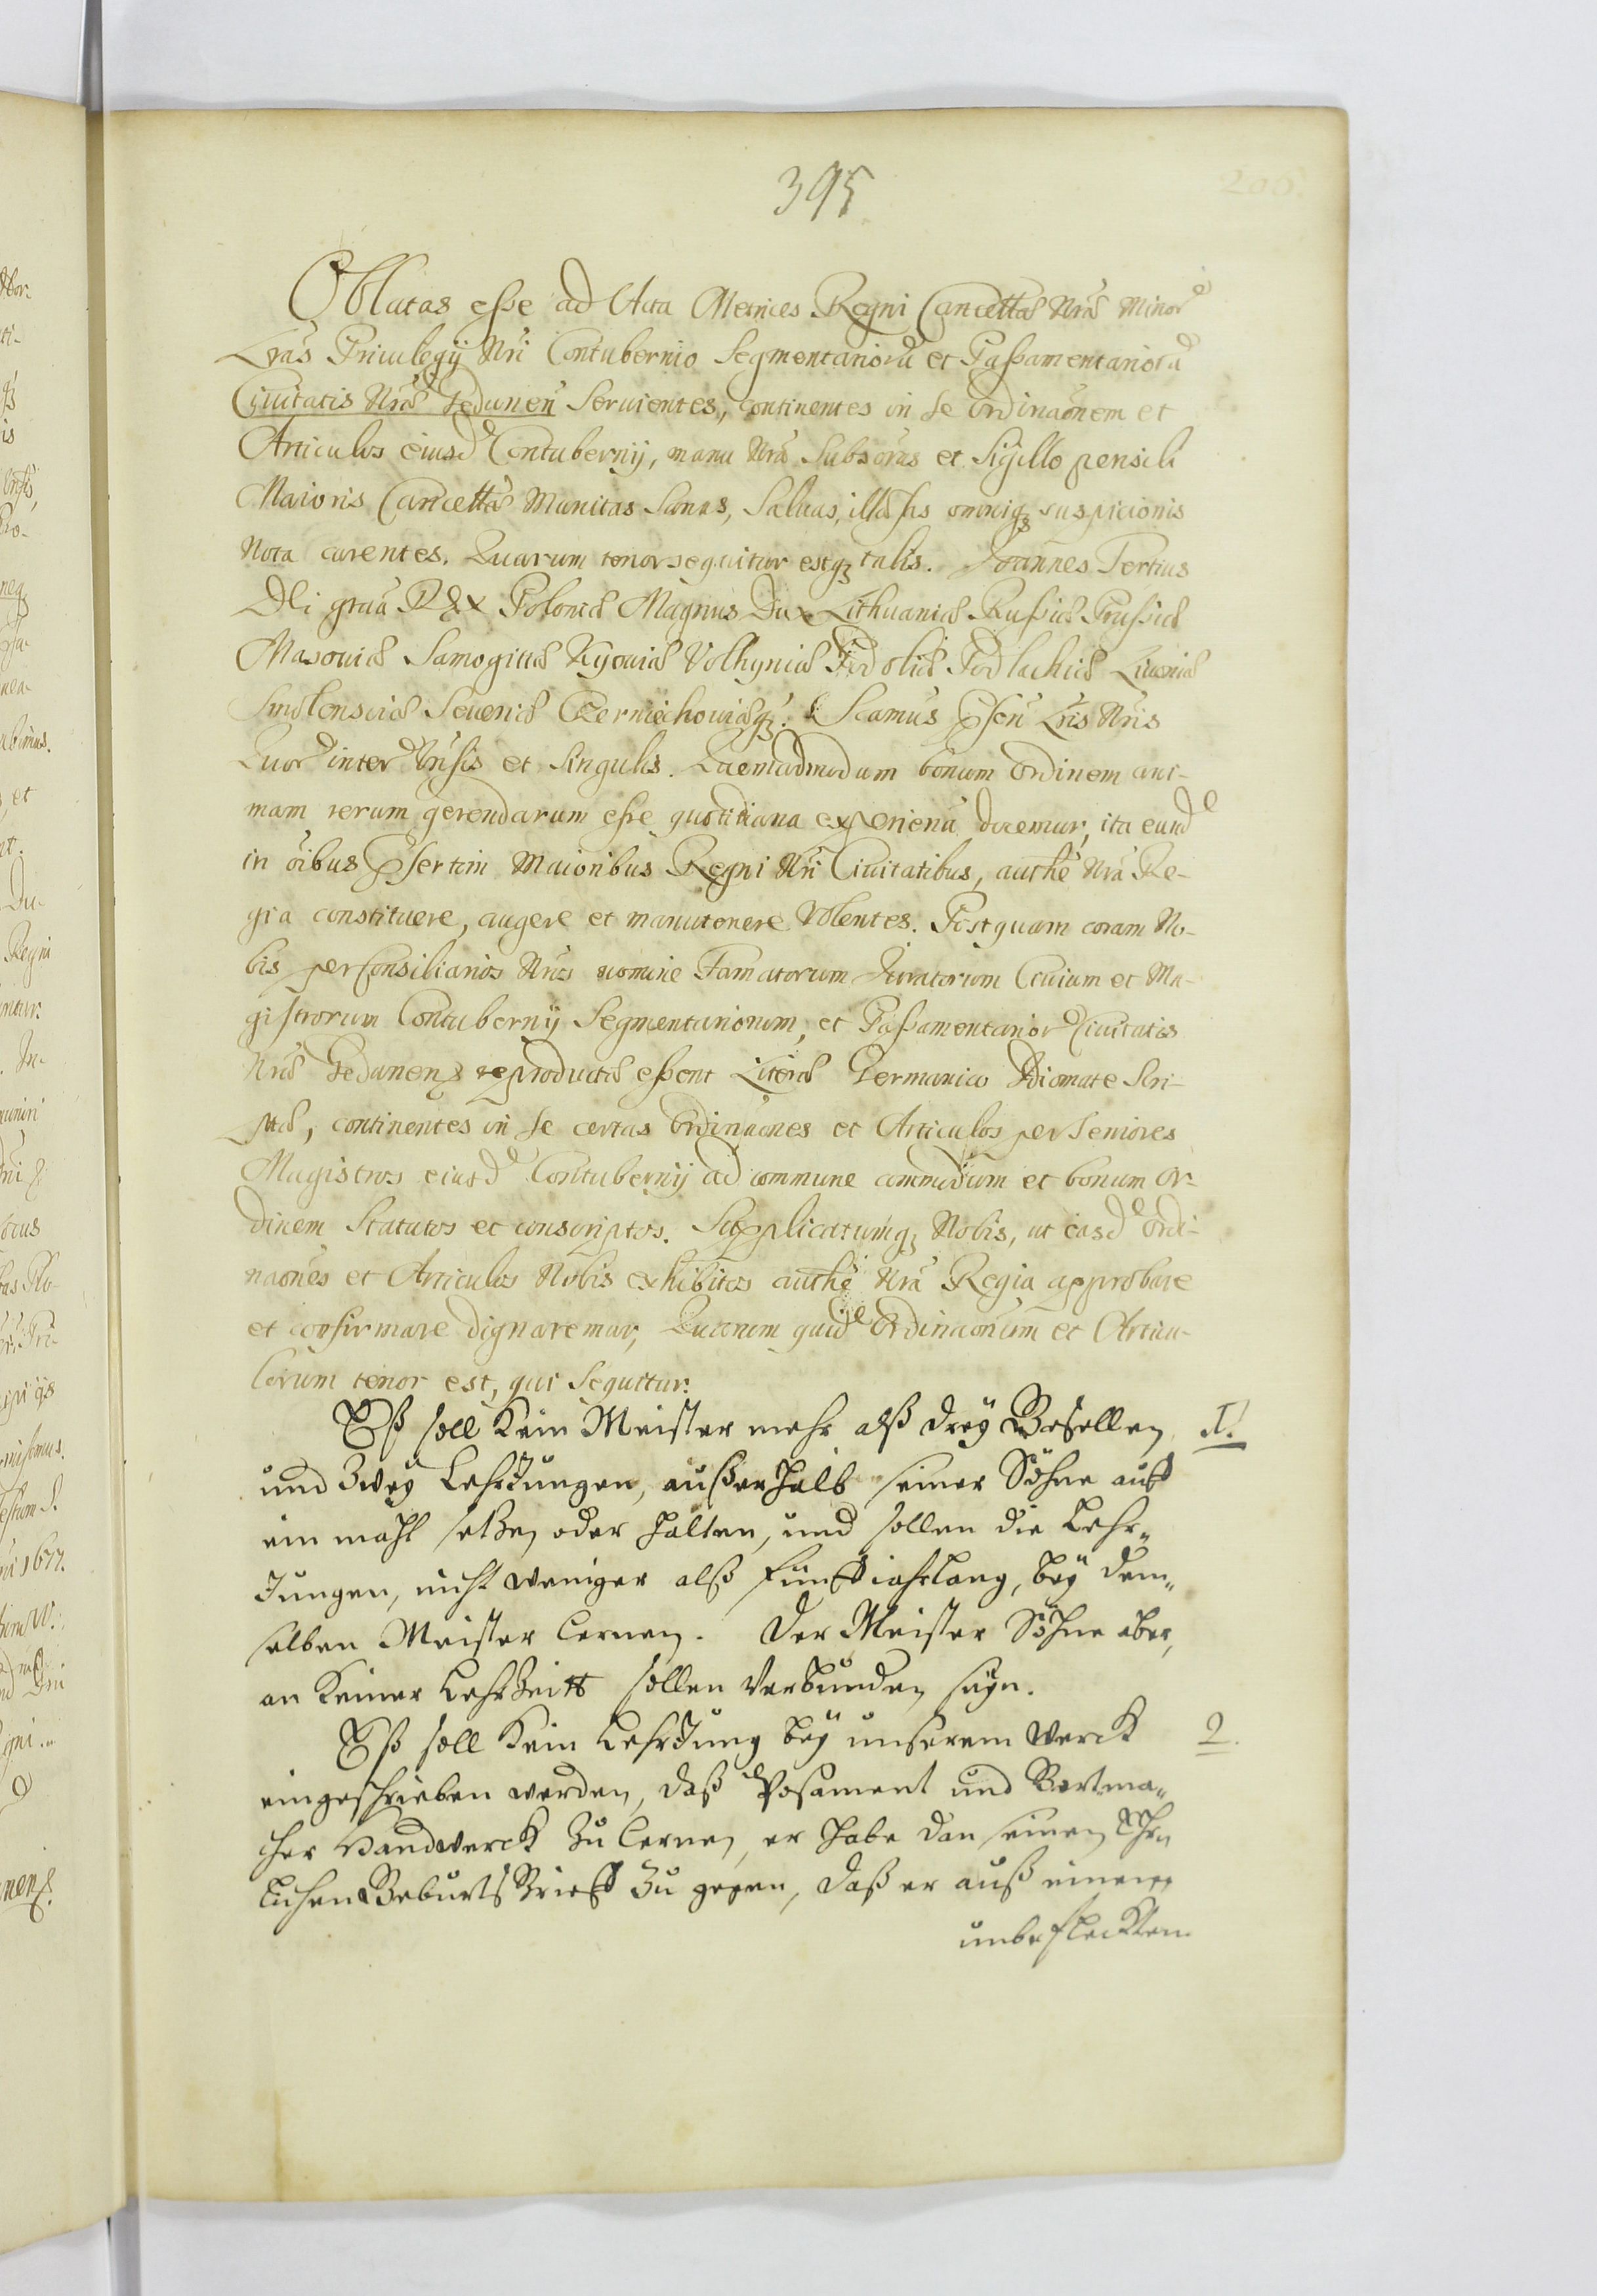 395
206.
Oblatas esse ad Acta Metrices Regni Cancellæ Nræ Minor
Lras Privilegij Nri Contubernio Segmentarioru et Passamentarioru
Civitatis Nræ Gedanen Servientes, continentes in se Ordinaonem et
Articulos eiusd Contubernij, manu Nra Subscras et Sigillo pensili
Maioris Cancellæ Munitas Sanas, Salvas, illæsas omniq suspicionis
Nota carentes. Quarum tenor sequitur estq talis. Joannes Tertius
Dei graa Rex Poloniæ Magnus Dux Lithuaniæ Russiæ Prussiæ
Masoviæ Samogitiæ Kyoviæ Volhyniæ Podoliæ Podlachiæ Livoniæ
Smolensciæ Severiæ Czerniechoviæq. Scamus Psen Lris Nris
Quor inter Vnsis et Singulis. Quemadmodum bonum Ordinem ani-
mam rerum gerendarum esse quotidiana experiena docemur, ita eund
in oibus Psertim Maioribus Regni Nri Civitatibus, authe Nra Re-
gia constituere, augere et manutenere Volentes. Postquam coram No-
bis per Consiliarios Nros nomine Famatorum Juratorum Civium et Ma-
gistrorum Contubernij Segmentariorum, et Passamentarior Civitatis
Nræ Gedanen reproductæ essent Literæ Germanico Idiomate Scri-
ptæ, continentes in se certas Ordinaones et Articulos per Seniores
Magistros eiusd Contubernij ad commune commodum et bonum Or-
dinem Statutos et conscriptos. Supplicatumq Nobis, ut easd Ordi-
naones et Articulos Nobis exhibitos authe Nra Regia approbare
et confirmare dignaremur, Quarum quid Ordinaonum et Articu-
lorum tenor est, qui Sequitur.
Eß soll Kein Meister mehr alß dreÿ Gesellen 1.
und Zweÿ LehrJungen, außerhalb seiner Söhne auff
ein mahl setzen oder halten, und sollen die Lehr-
Jungen, nicht weniger alß Fünff iahrlang, beÿ dem-
selben Meister lernen. Der Meister Söhne aber,
an Keiner LehrZeitt sollen Verbunden seÿn.
Eß soll Kein LehrJung beÿ unserem Werck 2.
eingeschrieben werden, daß Posament und Bortma-
cher Handwerck Zu lernen, er habe dan seinen Ehr-
lichen Geburts Brieff Zu gegen, daß er auß einem
unbeflecktem